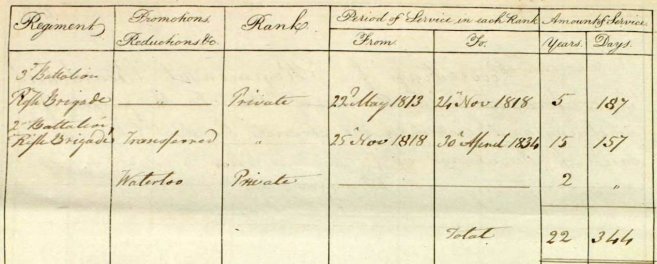 Regiment Promotions Reductions &c. Rank Period of Service in each Rank Amount of Service
From To Years. Days.
3d Battalion
Rifle Brigade " Private 22d May 1813 24th Nov 1818 5 187
2nd Battalion
Rifle Brigade Transferred " 25th Nov 1818 30th April 1834 15 157
Waterloo Private 2 "
Total 22 344